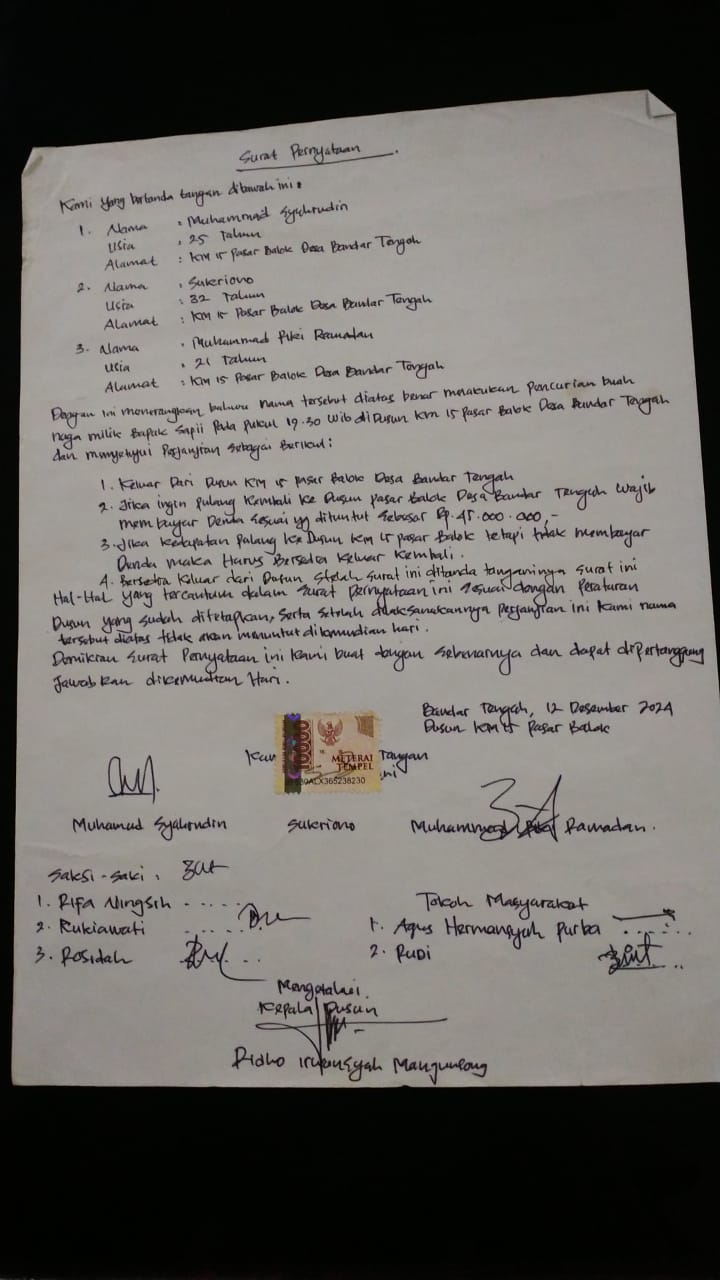 Surat Pernyataan.
Kami yang bertanda tangan dibawah ini:
1. Nama : Muhammad Syahrudin
Usia : 25 Tahun
Alamat : KM 15 Pasar Balok Desa Bandar Tengah
2. Nama : Sukeriono
Usia : 32 Tahun
Alamat : KM 15 Pasar Balok Desa Bandar Tengah
3. Nama : Muhammad Riki Ramadan
Usia : 21 Tahun
Alamat : KM 15 Pasar Balok Desa Bandar Tengah
Dengan ini menerangkan bahwa nama tersebut diatas benar melakukan pencurian buah
naga milik Bapak Sapii Pada Pukul 19.30 Wib di Dusun KM 15 Pasar Balok Desa Bandar Tengah
dan menyetujui Perjanjian Sebagai Berikut:
1. Keluar Dari Dusun KM 15 Pasar Balok Desa Bandar Tengah
2. Jika ingin pulang Kembali Ke Dusun Pasar Balok Desa Bandar Tengah wajib
membayar Denda Sesuai yg dituntut sebesar Rp.45.000.000,-
3. Jika Kedapatan Pulang Ke Dusun KM 15 Pasar Balok tetapi tidak membayar
Denda maka Harus Bersedia Keluar Kembali.
4. Bersedia Keluar dari Dusun Stelah Surat ini ditanda tanganinya Surat ini
Hal-Hal yang tercantum dalam Surat Pernyataan ini Sesuai dengan Peraturan
Dusun yang sudah ditetapkan, Serta Setelah dilaksanakannya Perjanjian ini Kami nama
tersebut diatas tidak akan menuntut dikemudian hari.
Demikian Surat Pernyataan ini Kami buat dengan Sebenarnya dan dapat dipertanggung
Jawabkan dikemudian Hari.
Bandar Tengah, 12 Desember 2024
Dusun KM 15 Pasar Balok
Tangan
10000
METERAI
TEMPEL
ALX365238230
Muhamad Syahrudin Sukeriono Muhammad Ramadan.
Saksi-saki :
1. Rifa Ningsih
2. Rukiawati
3. Rosidah
Tokoh Masyarakat
1. Agus Hermansyah Purba
2. Rudi
Mengetahui
Kepala Dusun
Ridho Irwansyah Mangunsong